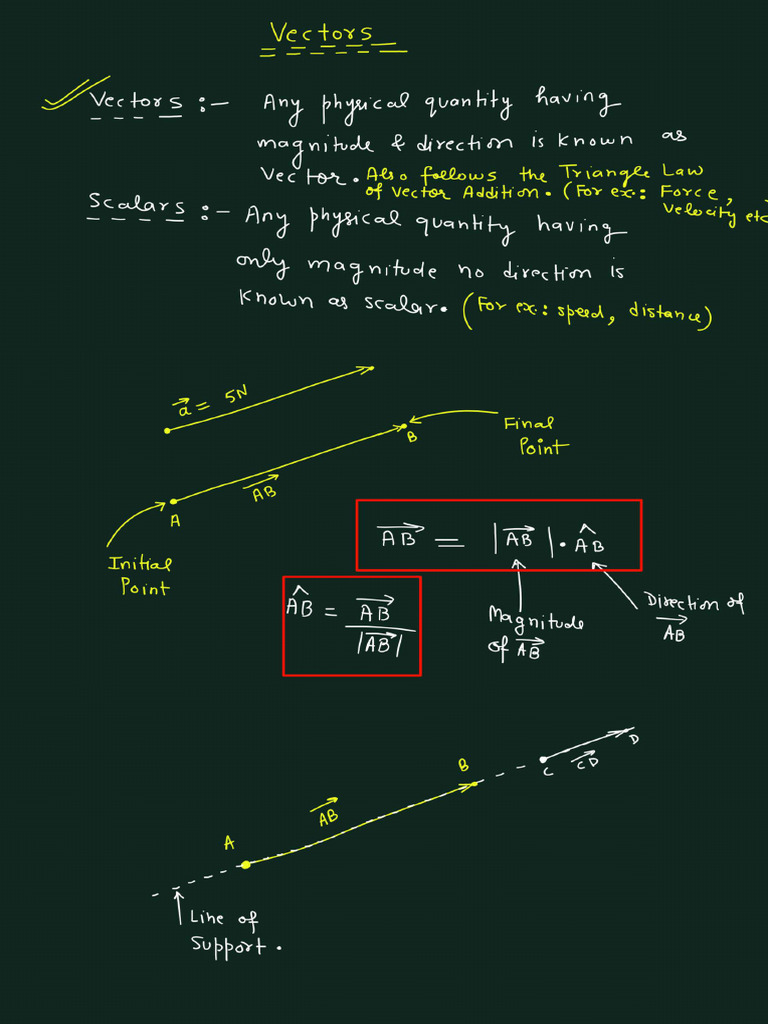 Vectors
Vectors :- Any physical quantity having
magnitude & direction is known as
Vector. Also follows the Triangle Law
of Vector Addition. (For ex.: Force,
Velocity etc)
Scalars :- Any physical quantity having
only magnitude no direction is
known as scalar. (For ex.: speed, distance)
a⃗ = 5N
B
Final
Point
AB⃗
A
Initial
Point
AB⃗ = |AB⃗|·AB̂
AB̂ = AB⃗ / |AB⃗|
Magnitude
of AB⃗
Direction of
AB⃗
D
C
CD⃗
B
AB⃗
A
Line of
Support.